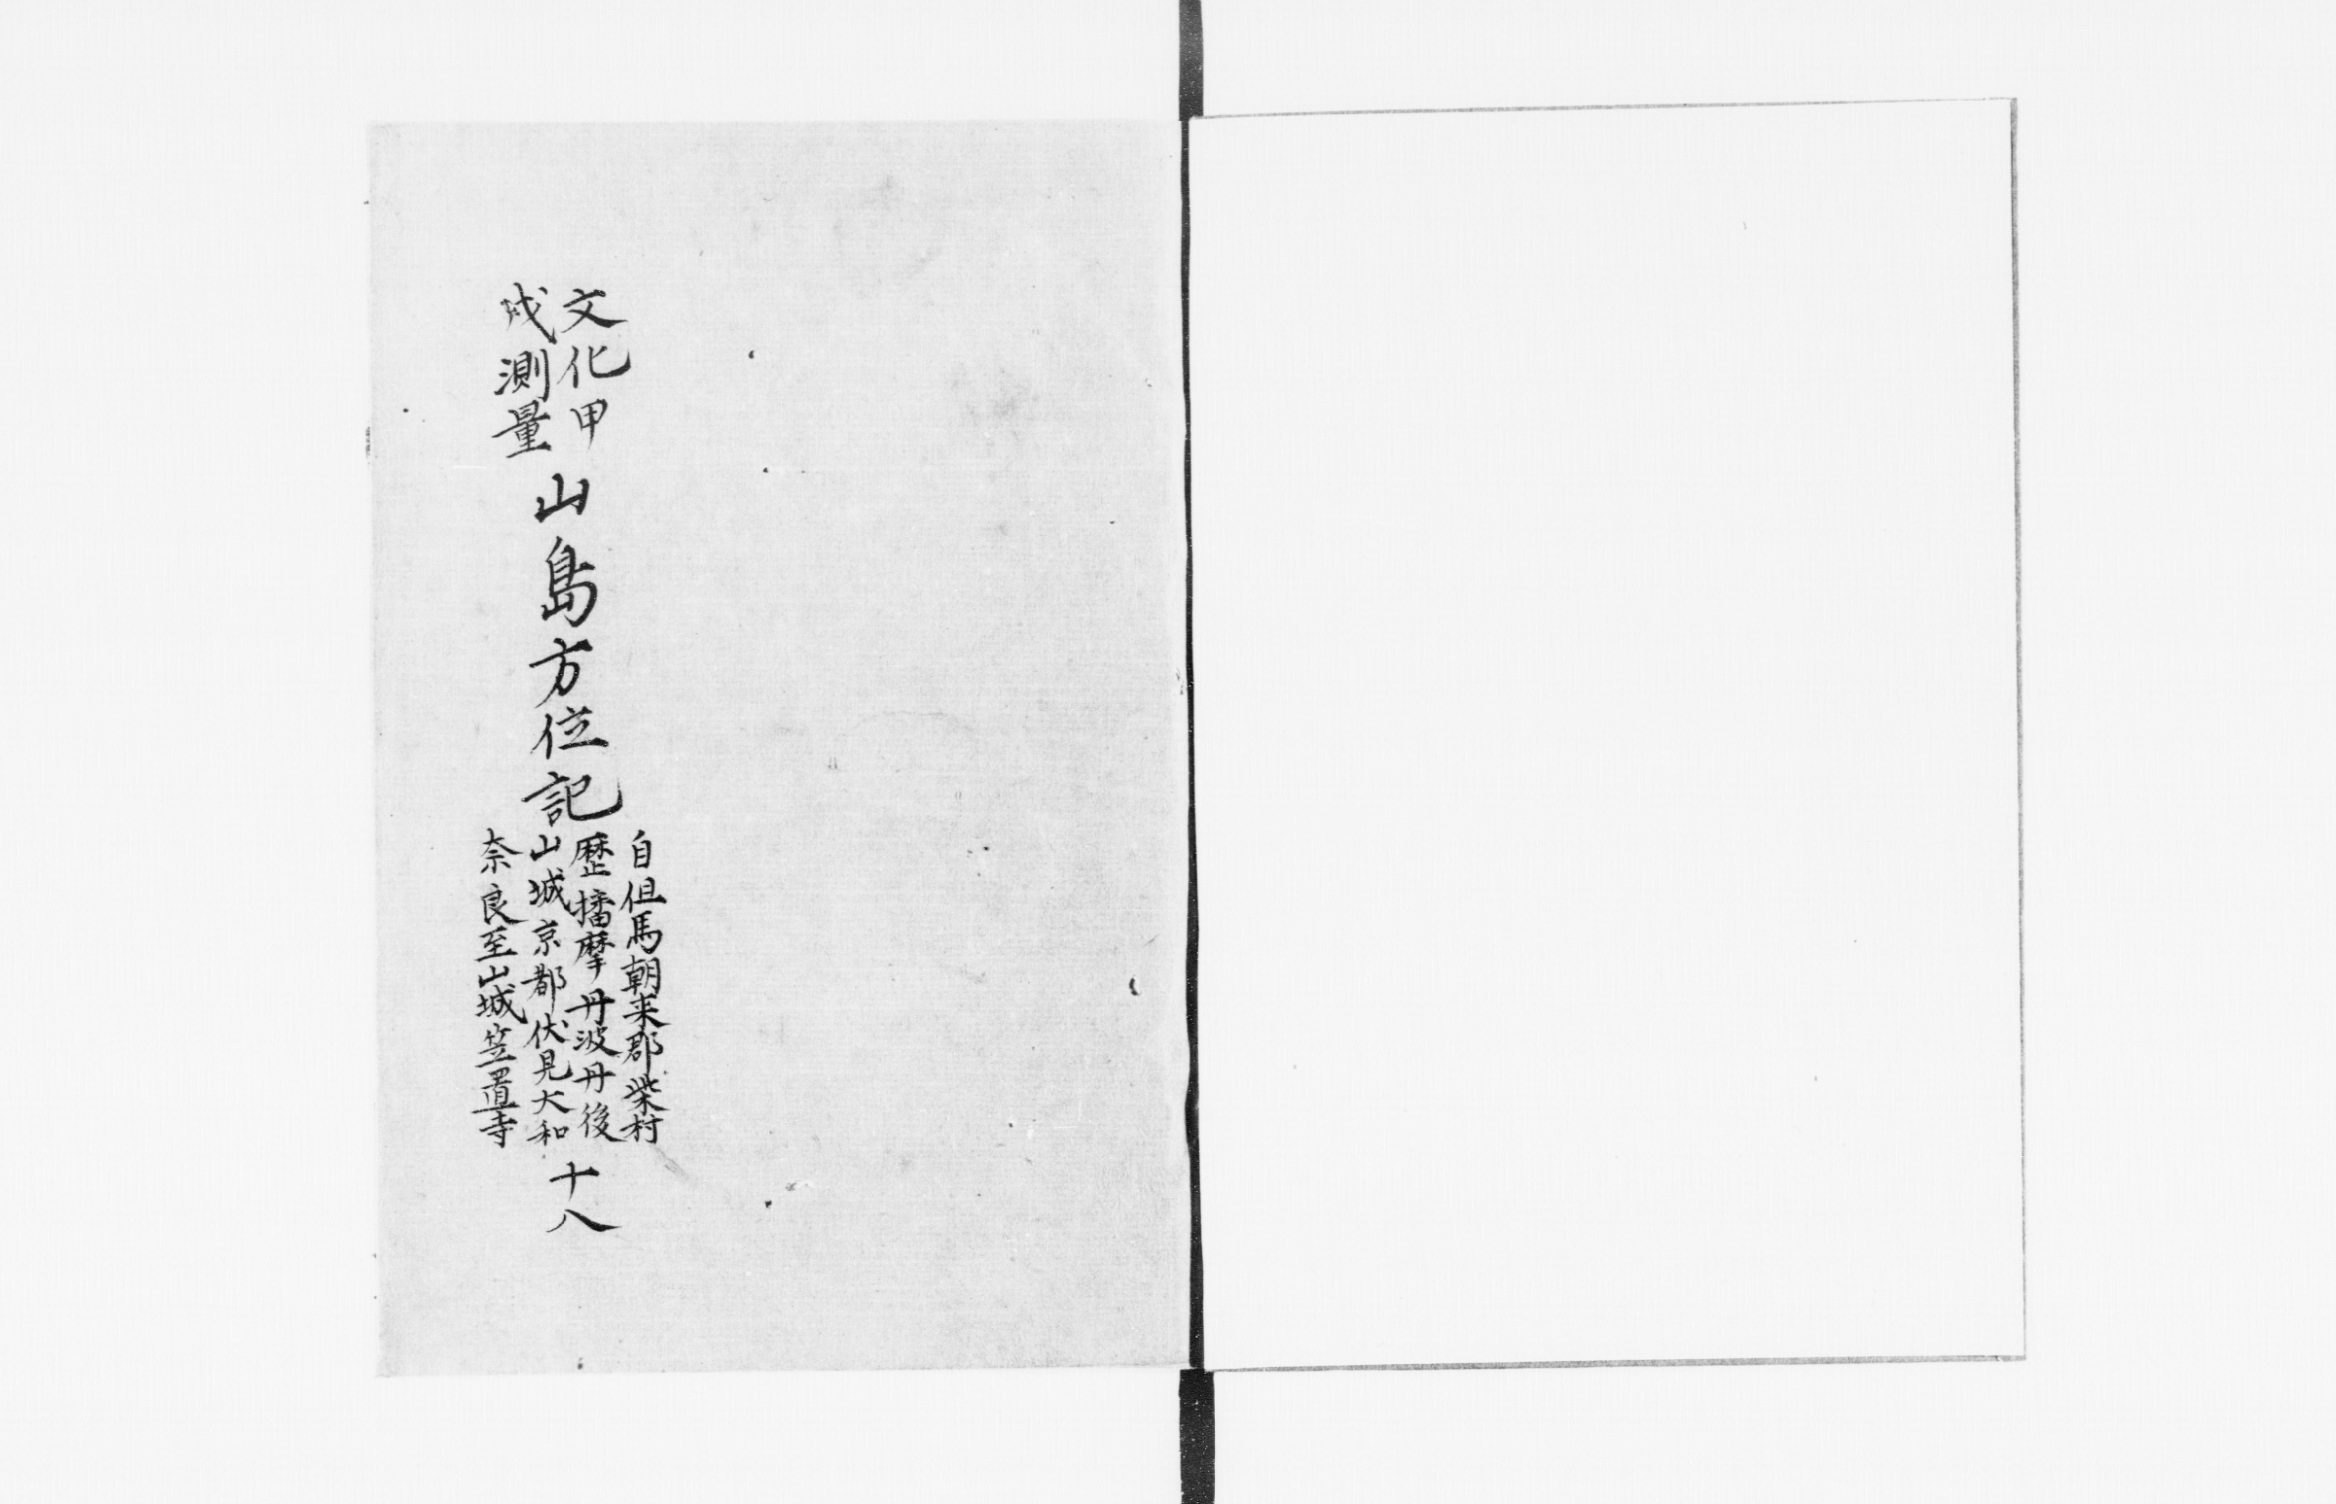 文化甲
戌測量
山島方位記
自但馬朝来郡柴村
歴播摩丹波丹後
山城京都伏見大和
奈良至山城笠置寺
十八